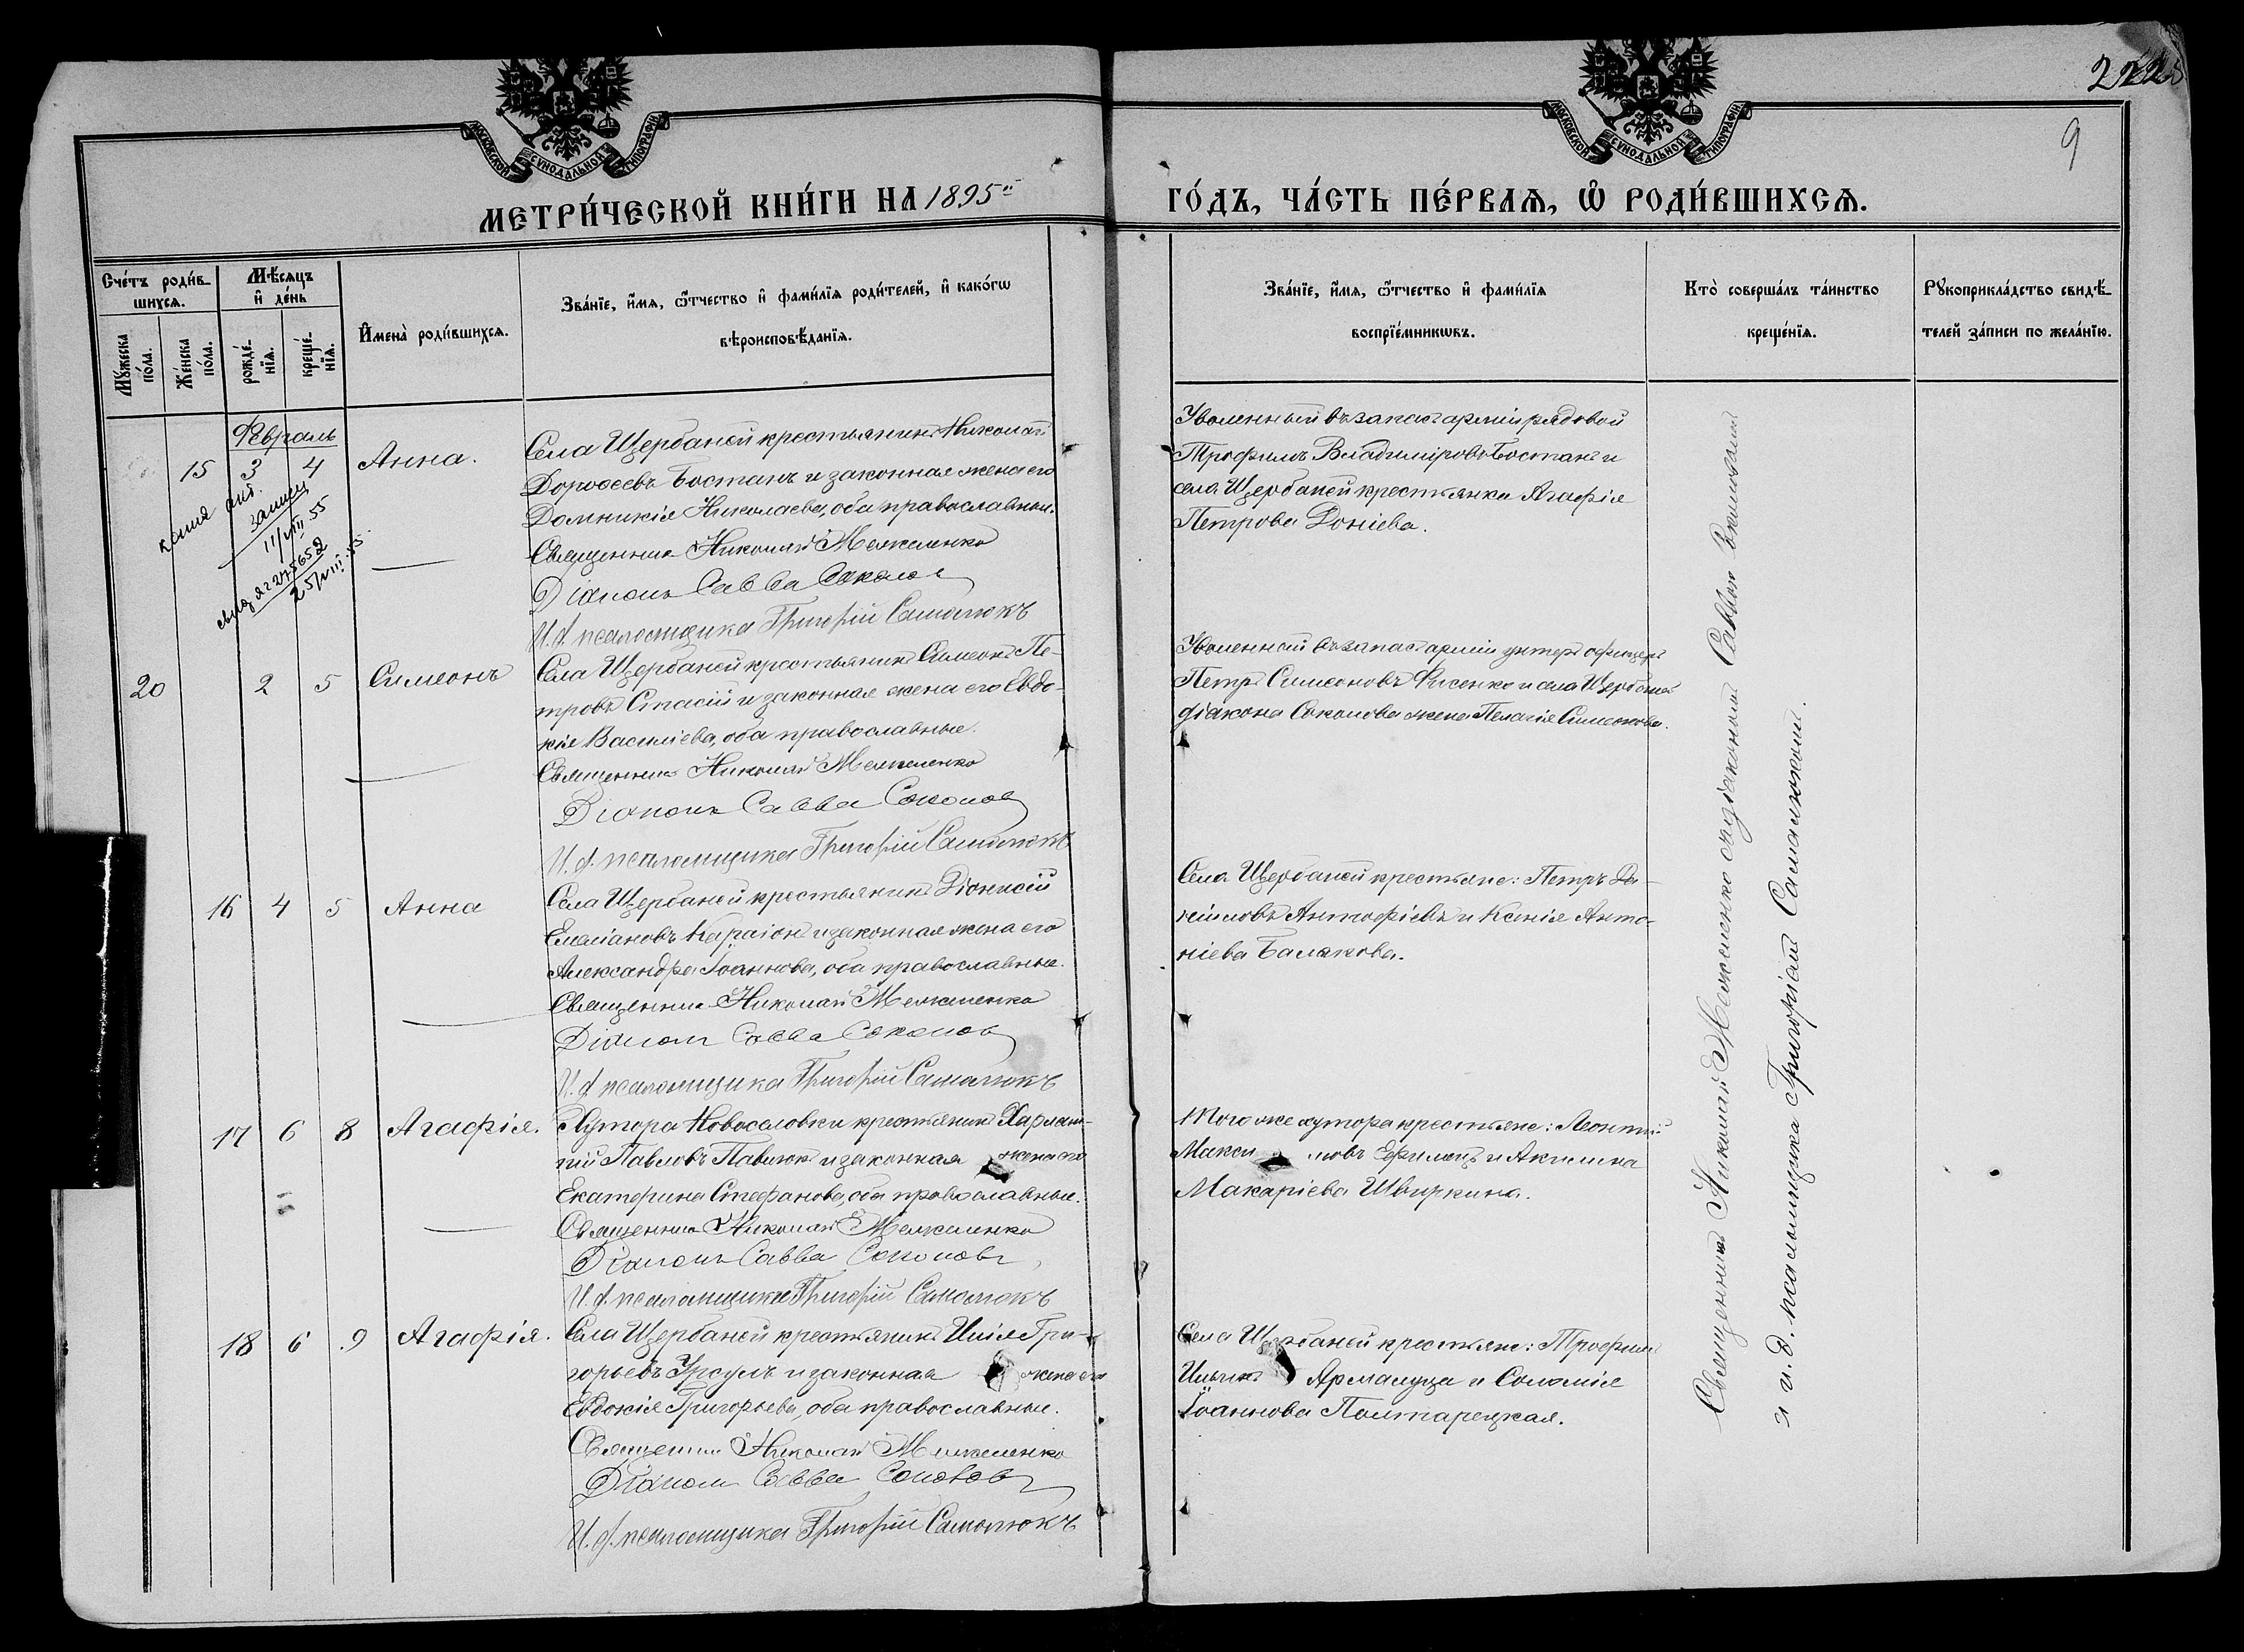 222
9
МОСКОВСКОЙ СѴНОДАЛЬНОЙ ТИПОГРАФІИ
МОСКОВСКОЙ СѴНОДАЛЬНОЙ ТИПОГРАФІИ
МЕТРИ́ЧЕСКОЙ КНИ́ГИ НА 1895й
ГО́ДЪ, ЧА́СТЬ ПЕ́РВАѦ, Ѡ҆ РОДИ́ВШИХСѦ.
Сче́тъ роди́в-
шихсѧ.
Мꙋ́жеска по́ла.
Же́нска по́ла.
Мѣ́сѧцъ и҆ де́нь
рожде́-нїѧ.
креще́-нїѧ.
И҆мена̀ роди́вшихсѧ.
Зва́нїе, и҆́мѧ, ѻ҆́тчество и҆ фами́лїѧ роди́телей, и҆ како́гѡ
вѣроисповѣ́данїѧ.
Зва́нїе, и҆́мѧ, ѻ҆́тчество и҆ фами́лїѧ
воспрїе́мникѡвъ.
Кто̀ соверша́лъ та́инство
креще́нїѧ.
Рꙋкоприкла́дство свидѣ́-
телей за́писи по жела́нїю.
Февраль
15 3 4 Анна.
Села Щербаней крестьянинъ Николай
Дороѳеевъ Бостанъ и законная жена его
Домникія Николаева, оба православные.
Священникъ Николай Межеленко
Діаконъ Савва Соколов
И. д. псаломщика Григорій Самолюкъ
копия
записи
11/VIII 55
25/VIII 55
Уволенный въ запасъ арміи рядовой
Трофимъ Владиміровъ Бостанъ и
села Щербаней крестьянка Агафія
Петрова Доніева.
20 2 5 Симеонъ
Села Щербаней крестьянинъ Симеонъ Пе-
тровъ Стасій и законная жена его Евдо-
кія Василіева, оба православные.
Священникъ Николай Межеленко
Діаконъ Савва Соколов
И. д. псаломщика Григорій Самолюкъ
Уволенный въ запасъ арміи унтеръ офицеръ
Петръ Симеоновъ Фисенко и села Щербаней
діакона Соколова жена Пелагія Симеонова.
16 4 5 Анна
Села Щербаней крестьянинъ Діонисій
Емеліановъ Караіонъ и законная жена его
Александра Іоаннова, оба православные.
Священникъ Николай Межеленко
Діаконъ Савва Соколов
И. д. псаломщика Григорій Самолюкъ
Села Щербаней крестьяне: Петръ Да-
ніиловъ Антофіевъ и Ксенія Анто-
ніева Балакова.
17 6 8 Агафія.
Хутора Новоселовки крестьянинъ Харлам-
пій Павловъ Павлюкъ и законная жена его
Екатерина Стефанова, оба православные.
Священникъ Николай Межеленко
Діаконъ Савва Соколовъ
И. д. псаломщика Григорій Самолюкъ
Того же хутора крестьяне: Леонтій
Максимовъ Ефимецъ и Акилина
Макаріева Швыркина.
18 6 9 Агафія.
Села Щербаней крестьянинъ Илія Гри-
горьевъ Урсулъ и законная жена его
Евдокія Григорьева, оба православные.
Священникъ Николай Межеленко
Діаконъ Савва Соколов
И. д. псаломщика Григорій Самолюкъ
Села Щербаней крестьяне: Трофимъ
Ильинъ Армануца и Соломія
Іоаннова Полтарецкая.
Священникъ Николай Межеленко съ діакономъ Саввою Соколовымъ
и и. д. псаломщика Григоріемъ Самолюкомъ.